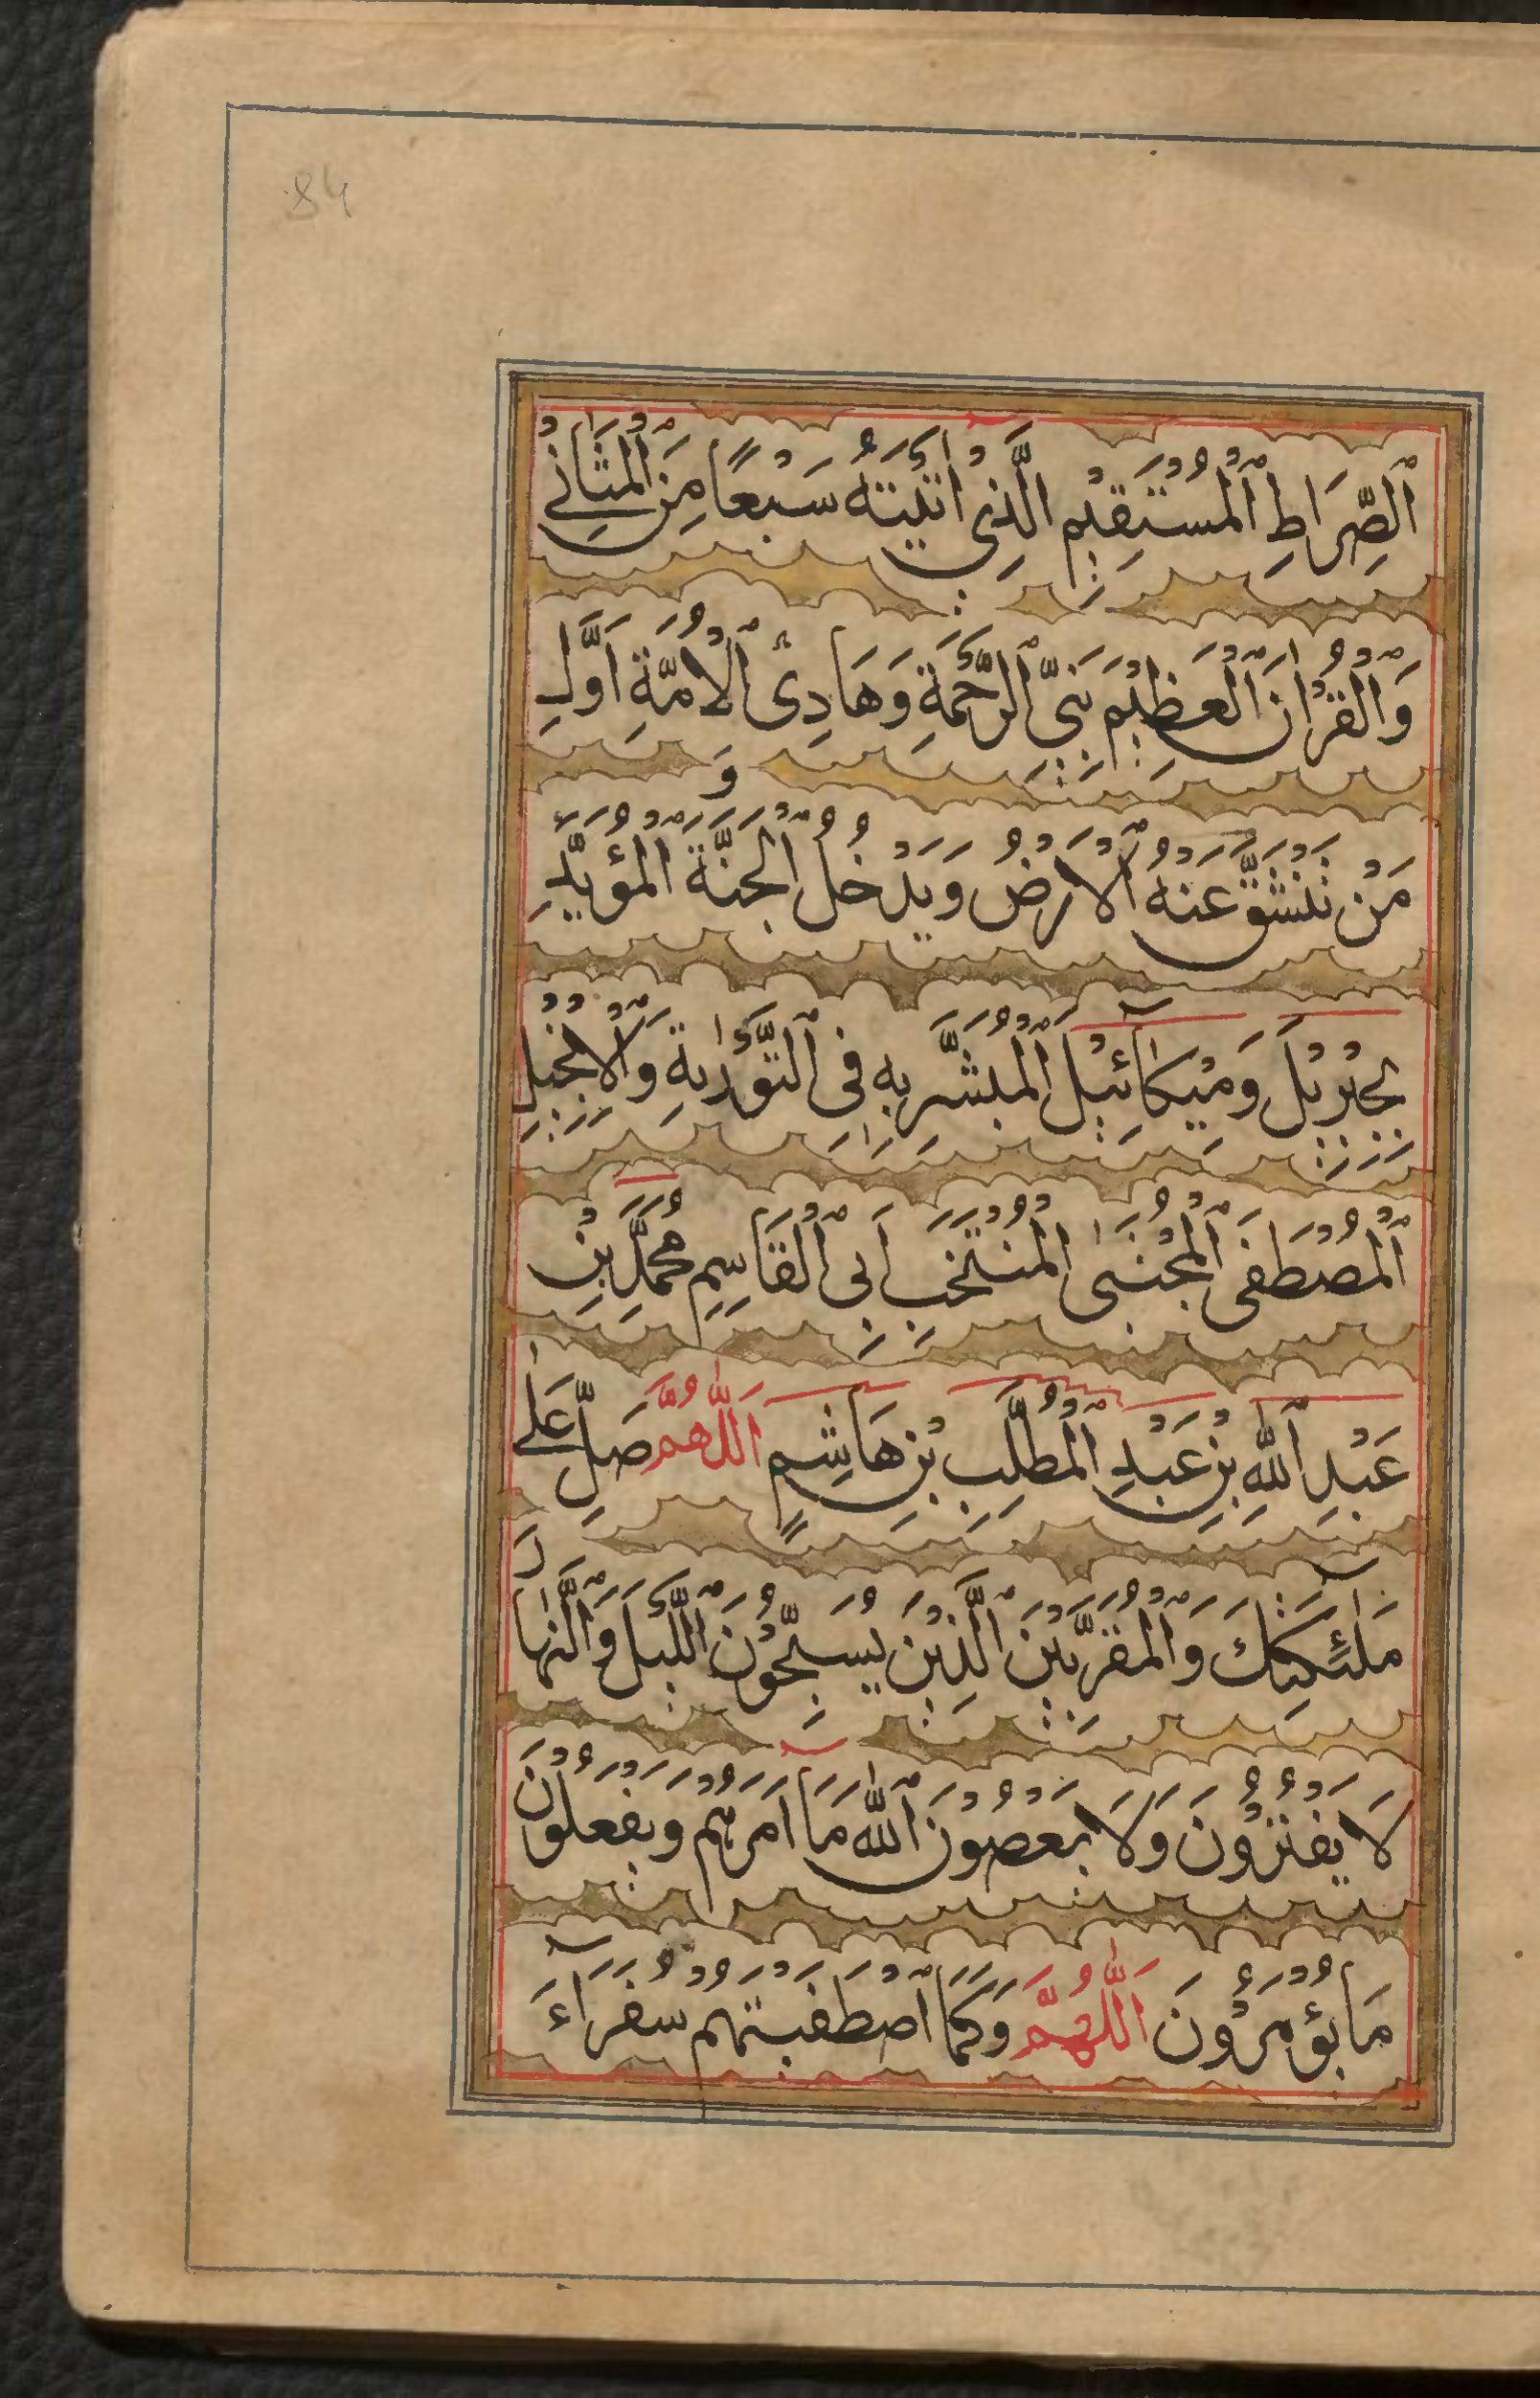 84
اَلصِّرَاطِ الْمُسْتَقِيْمِ الَّذِيْ اٰتَيْتَهُ سَبْعًا مِنَ الْمَثَانِيْ
وَالْقُرْاٰنَ الْعَظِيْمَ نَبِيِّ الرَّحْمَةِ وَهَادِئ الْاُمَّةِ اَوَّلِ
مَنْ تَنْشَقُّ عَنْهُ الْاَرْضُ وَيَدْخُلُ الْجَنَّةَ وَ الْمُؤَيَّدِ
بِجِبْرِيْلَ وَمِيْكَآئِيْلَ الْمُبَشَّرِ بِهِ فِى التَّوْرٰيةِ وَالْاِنْجِيْلِ
اَلْمُصْطَفَى الْمُجْتَبٰى الْمُنْتَخَبِ اَبِى الْقَاسِمِ مُحَمَّدِ بْنِ
عَبْدِ اللّٰهِ بْنِ عَبْدِ الْمُطَّلِبِ بْنِ هَاشِمٍ اَللّٰهُمَّ صَلِّ عَلٰى
مَلٰٓئِكَتِكَ وَالْمُقَرَّبِيْنَ الَّذِيْنَ يُسَبِّحُوْنَ اللَّيْلَ وَالنَّهَارَ
لَا يَفْتُرُوْنَ وَلَا يَعْصُوْنَ اللّٰهَ مَا اَمَرَهُمْ وَيَفْعَلُوْنَ
مَا يُؤْمَرُوْنَ اَللّٰهُمَّ وَكَمَا اصْطَفَيْتَهُمْ سُفَرَآءَ